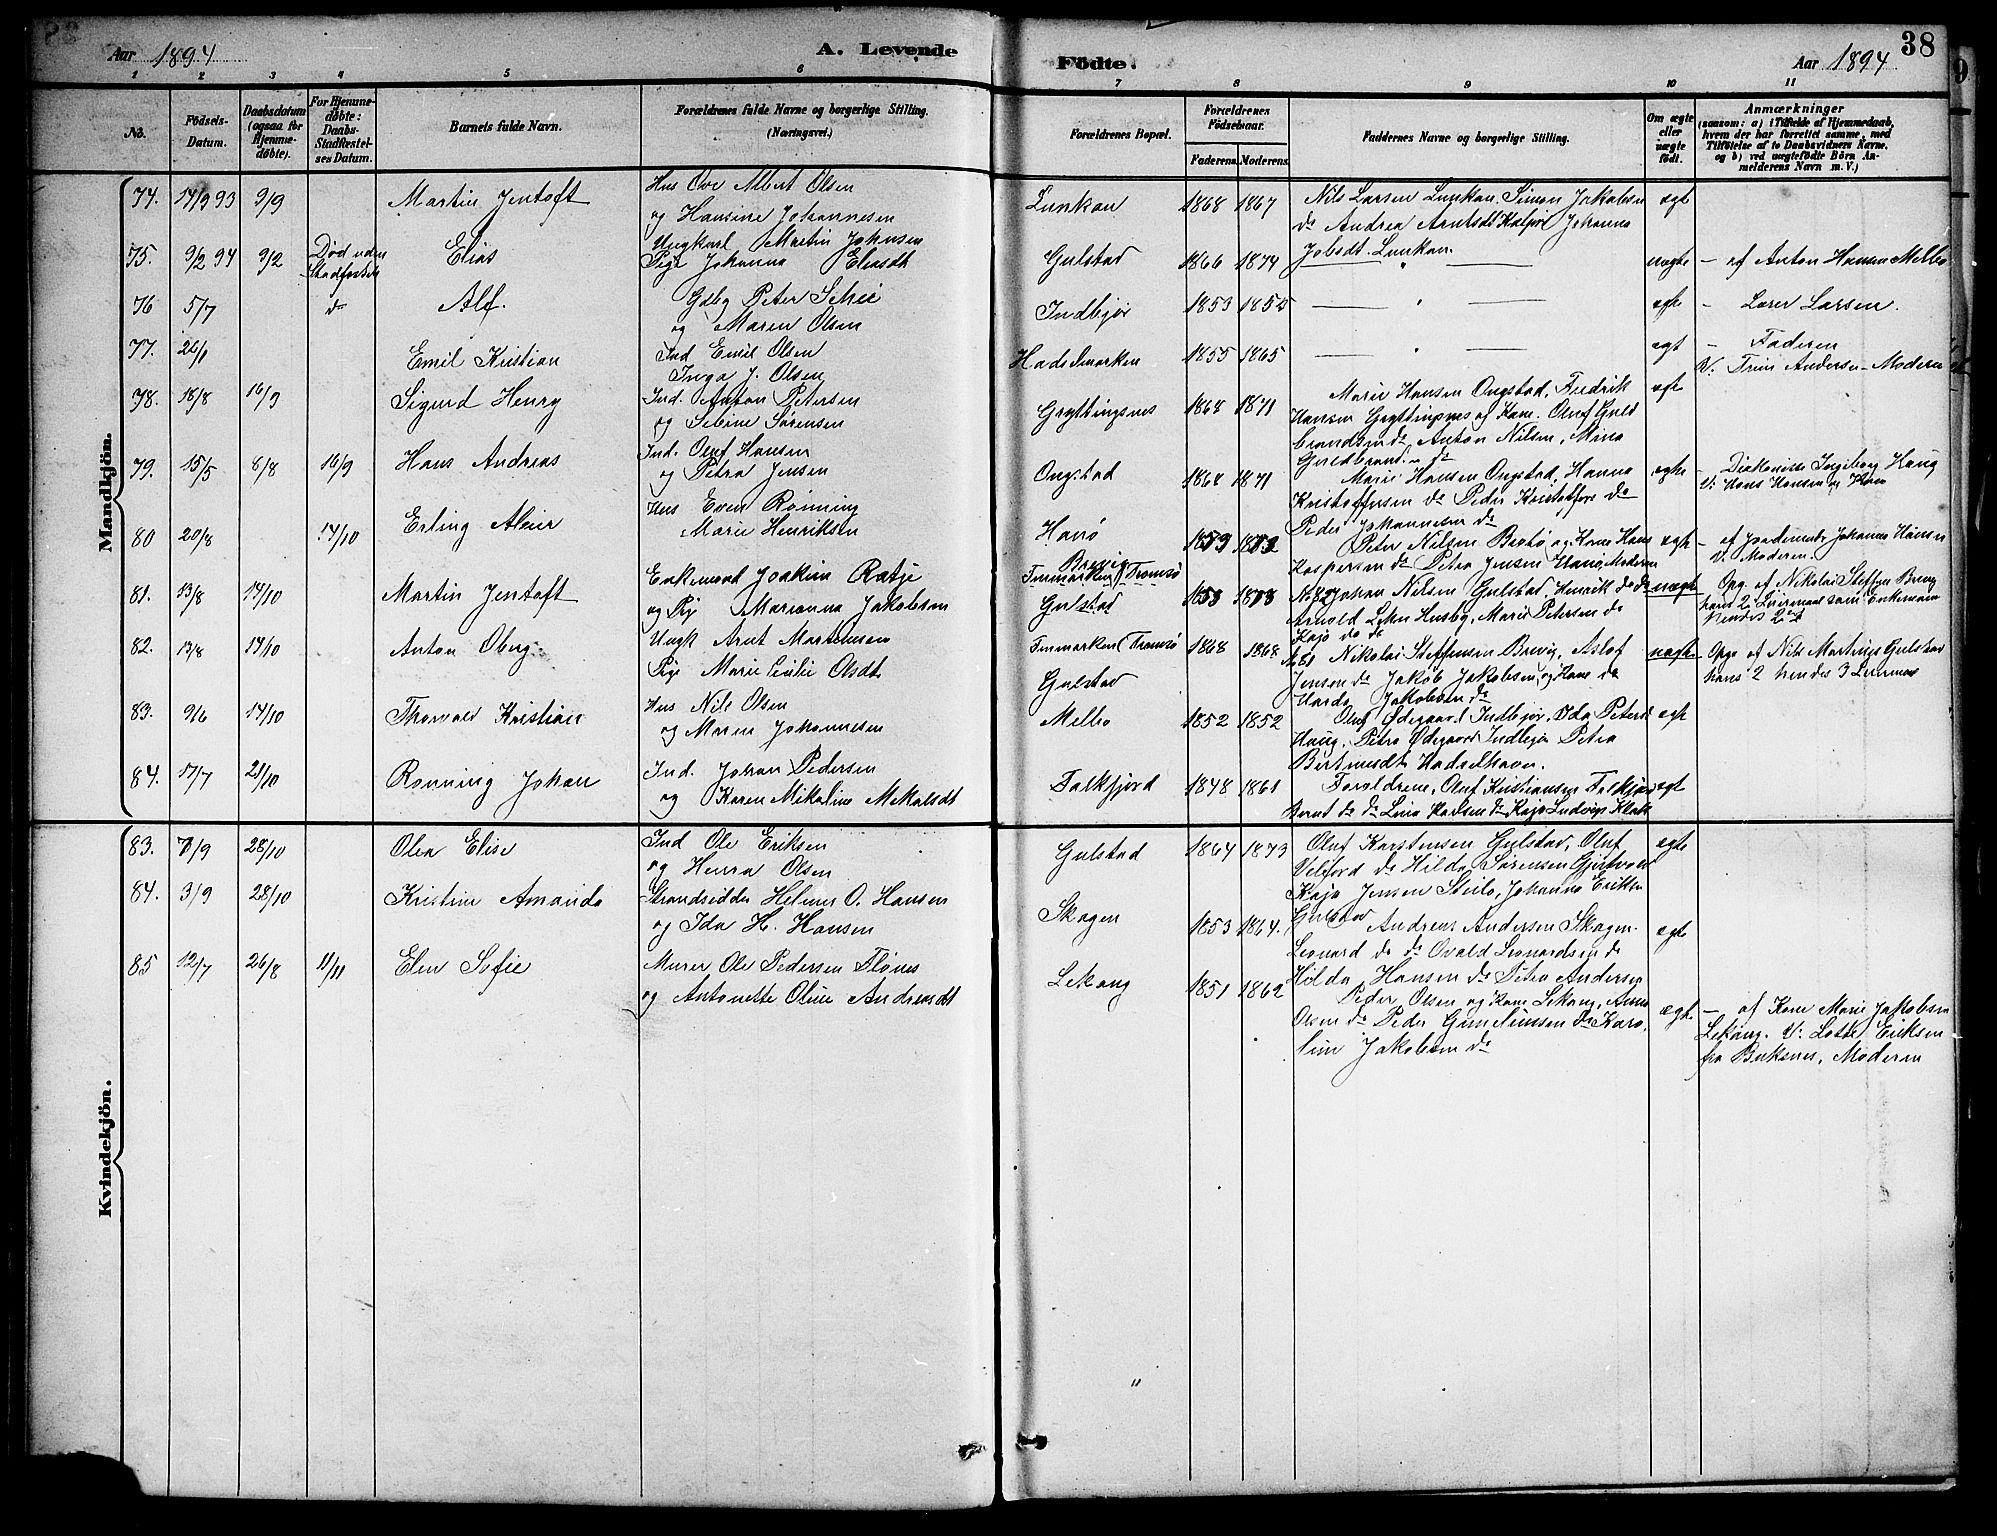 Aar 1894
A. Levende
Födte.
Aar 1894
38
1 2 3 4 5 6 7 8 9 10 11
No.
Födsels-Datum.
Daabsdatum (ogsaa for Hjemme-døbte).
For Hjemme-døbte: Daabs-Stadfæstel-ses Datum.
Barnets fulde Navn.
Forældrenes fulde Navne og borgerlige Stilling. (Næringsvei.)
Forældrenes Bopæl.
Forældrenes Födselsaar.
Faderens. Moderens.
Faddernes Navne og borgerlige Stilling.
Om ægte eller uægte født.
Anmærkninger
(saasom: a) i Tilfælde af Hjemmedaab,
hvem der har forrettet samme, med
Tilföielse af to Daabsvidners Navne,
og b) ved uægtefödte Börn An-
melderens Navn m. V.)
Mandkjön.
74. 14/9 93 9/9 Martin Jentoft
Hus Ove Albert Olsen
og Hansine Johannesen
Lunkan 1868 1867
Nils Larsen Lunkan. Simon Jakobsen
do Andrea Arntsdt Johanna
Jobsdt. Lunkan.
ægt
75. 9/2 94 9/2 Død uden Stadfæstelse Elias
Ungkarl Martin Johnsen
Pige Johanna Eliasdt
Gulstad 1866 1874 — " — uægte — af Anton Hansen Melbo
76 5/7 do Alf.
Gdbg Peter Schei
og Maren Olsen
Indlejør 1853 — " — ægte — Lærer Larsen.
77. 26/1 Emil Kristian
Ind Emil Olsen
Inga J. Olsen
Hadselmarken 1855 1865 — " — ægt — Faderen
V: Andersen – Moderen
78. 18/8 16/9 Sigurd Henry
Ind. Anton Petersen
og Sebine Sørensen
Gryttingsnes 1868 1871
Marie Hansen Ongstad, Fredrik
Hansen Gryttingsnes af Kone. Oluf Guld
brandsen do Anton Nilsen, Mina
Guldbrand. do
ægte
79. 15/5 8/8 16/9 Hans Andreas
Ind. Oluf Hansen
og Petra Jensen
Ongstad 1868 1871
Marie Hansen Ongstad, Hanna
Kristoffersen do Peder Kristoffers do
Peder Johannesen do
ægte — Diakonisse Ingeborg Haug
V: Hans Hansen og Kone
80 20/8 14/10 Erling Aleier
Hus Even Rønning
Marie Henriksen
Hanø
Peter Nilsen Brotø og Kone Hans
Kaspersen do Petra Jensen Haug Moderen
ægte — af Jordemoder Johanna Hansen
V. Moderen.
81. 13/8 14/10 Martin Jentoft
Enkemand Joakim Ratje
og Pige Marianna Jakobsen
Brevig
Finmarken Tromsø
Gulstad
No 82 Johan Nilsen Gulstad, Henrik do do
Arnold Husby, Marie Petersen do
Kaja do do
uægte Opg. af Nikolai Steffen Brevig
hans 2 Leiermaal som Enkemand
hendes 2d
82. 13/8 14/10 Anton Oberg
Ungk Arnt Martinusen
Pige Marie Cecilie Olsdt
Finmarken Tromsø
Gulstad
1868 1868
No 81 Nikolai Steffensen Brevig, Aslof
Jensen do Jakob Jakobsen og Kone do
Jakobsen do
uægte — Opg. af Nils Martinus Gulstad
hans 2 hendes 3 Leiermaal
83. 9/6 14/10 Thorvald Kristian
Hus Nils Olsen
og Maren Johannesen
Melbo 1852 1852
Oluf Ødegaard Indlejør, Ida Peters
Haug. Petra Ødegaard Indlejør Petra
Hadselhavn.
ægte
84. 17/7 21/10 Rønning Johan
Ind. Johan Pedersen
og Karen Mikaline Mikalsdt
Falkfjord 1848 1861
Forældrene, Oluf Kristiansen Falkfjord
Bernt do do Lina Karlsen do Kaja Ludvigs
ægt
Kvindekjön.
83. 7/9 28/10 Olea Elise
Ind Ole Eriksen
og Henra Olsen
Gulstad 1864 1873
Oluf Karstensen Gulstad, Oluf
do Hilda Sørensen
Kaja Jensen Steilo, Johanna Eriksen
Gulstad
ægte
84. 3/9 28/10 Kristine Amanda
Strandsidder Helmer O. Hansen
og Ida H. Hansen
Skagen 1853 1864.
Andreas Andersen Skagen.
Leonard do do Ovald Leonardsen do
Hilda Hansen do Petra Andersen
ægte
85 12/7 26/8 11/11 Elen Sofie
Murer Ole Pedersen Flønes
og Antonette Oline Andreasdt
Lekang 1851 1862
Peder Olsen og Kone Lekang, Anna
Olsen do Peder do Karo,
line Jakobsen do
ægte — af Kone Marie Jakobsen
Lekang. V: Lotte Eriksen
fra Buksnes, Moderen
"